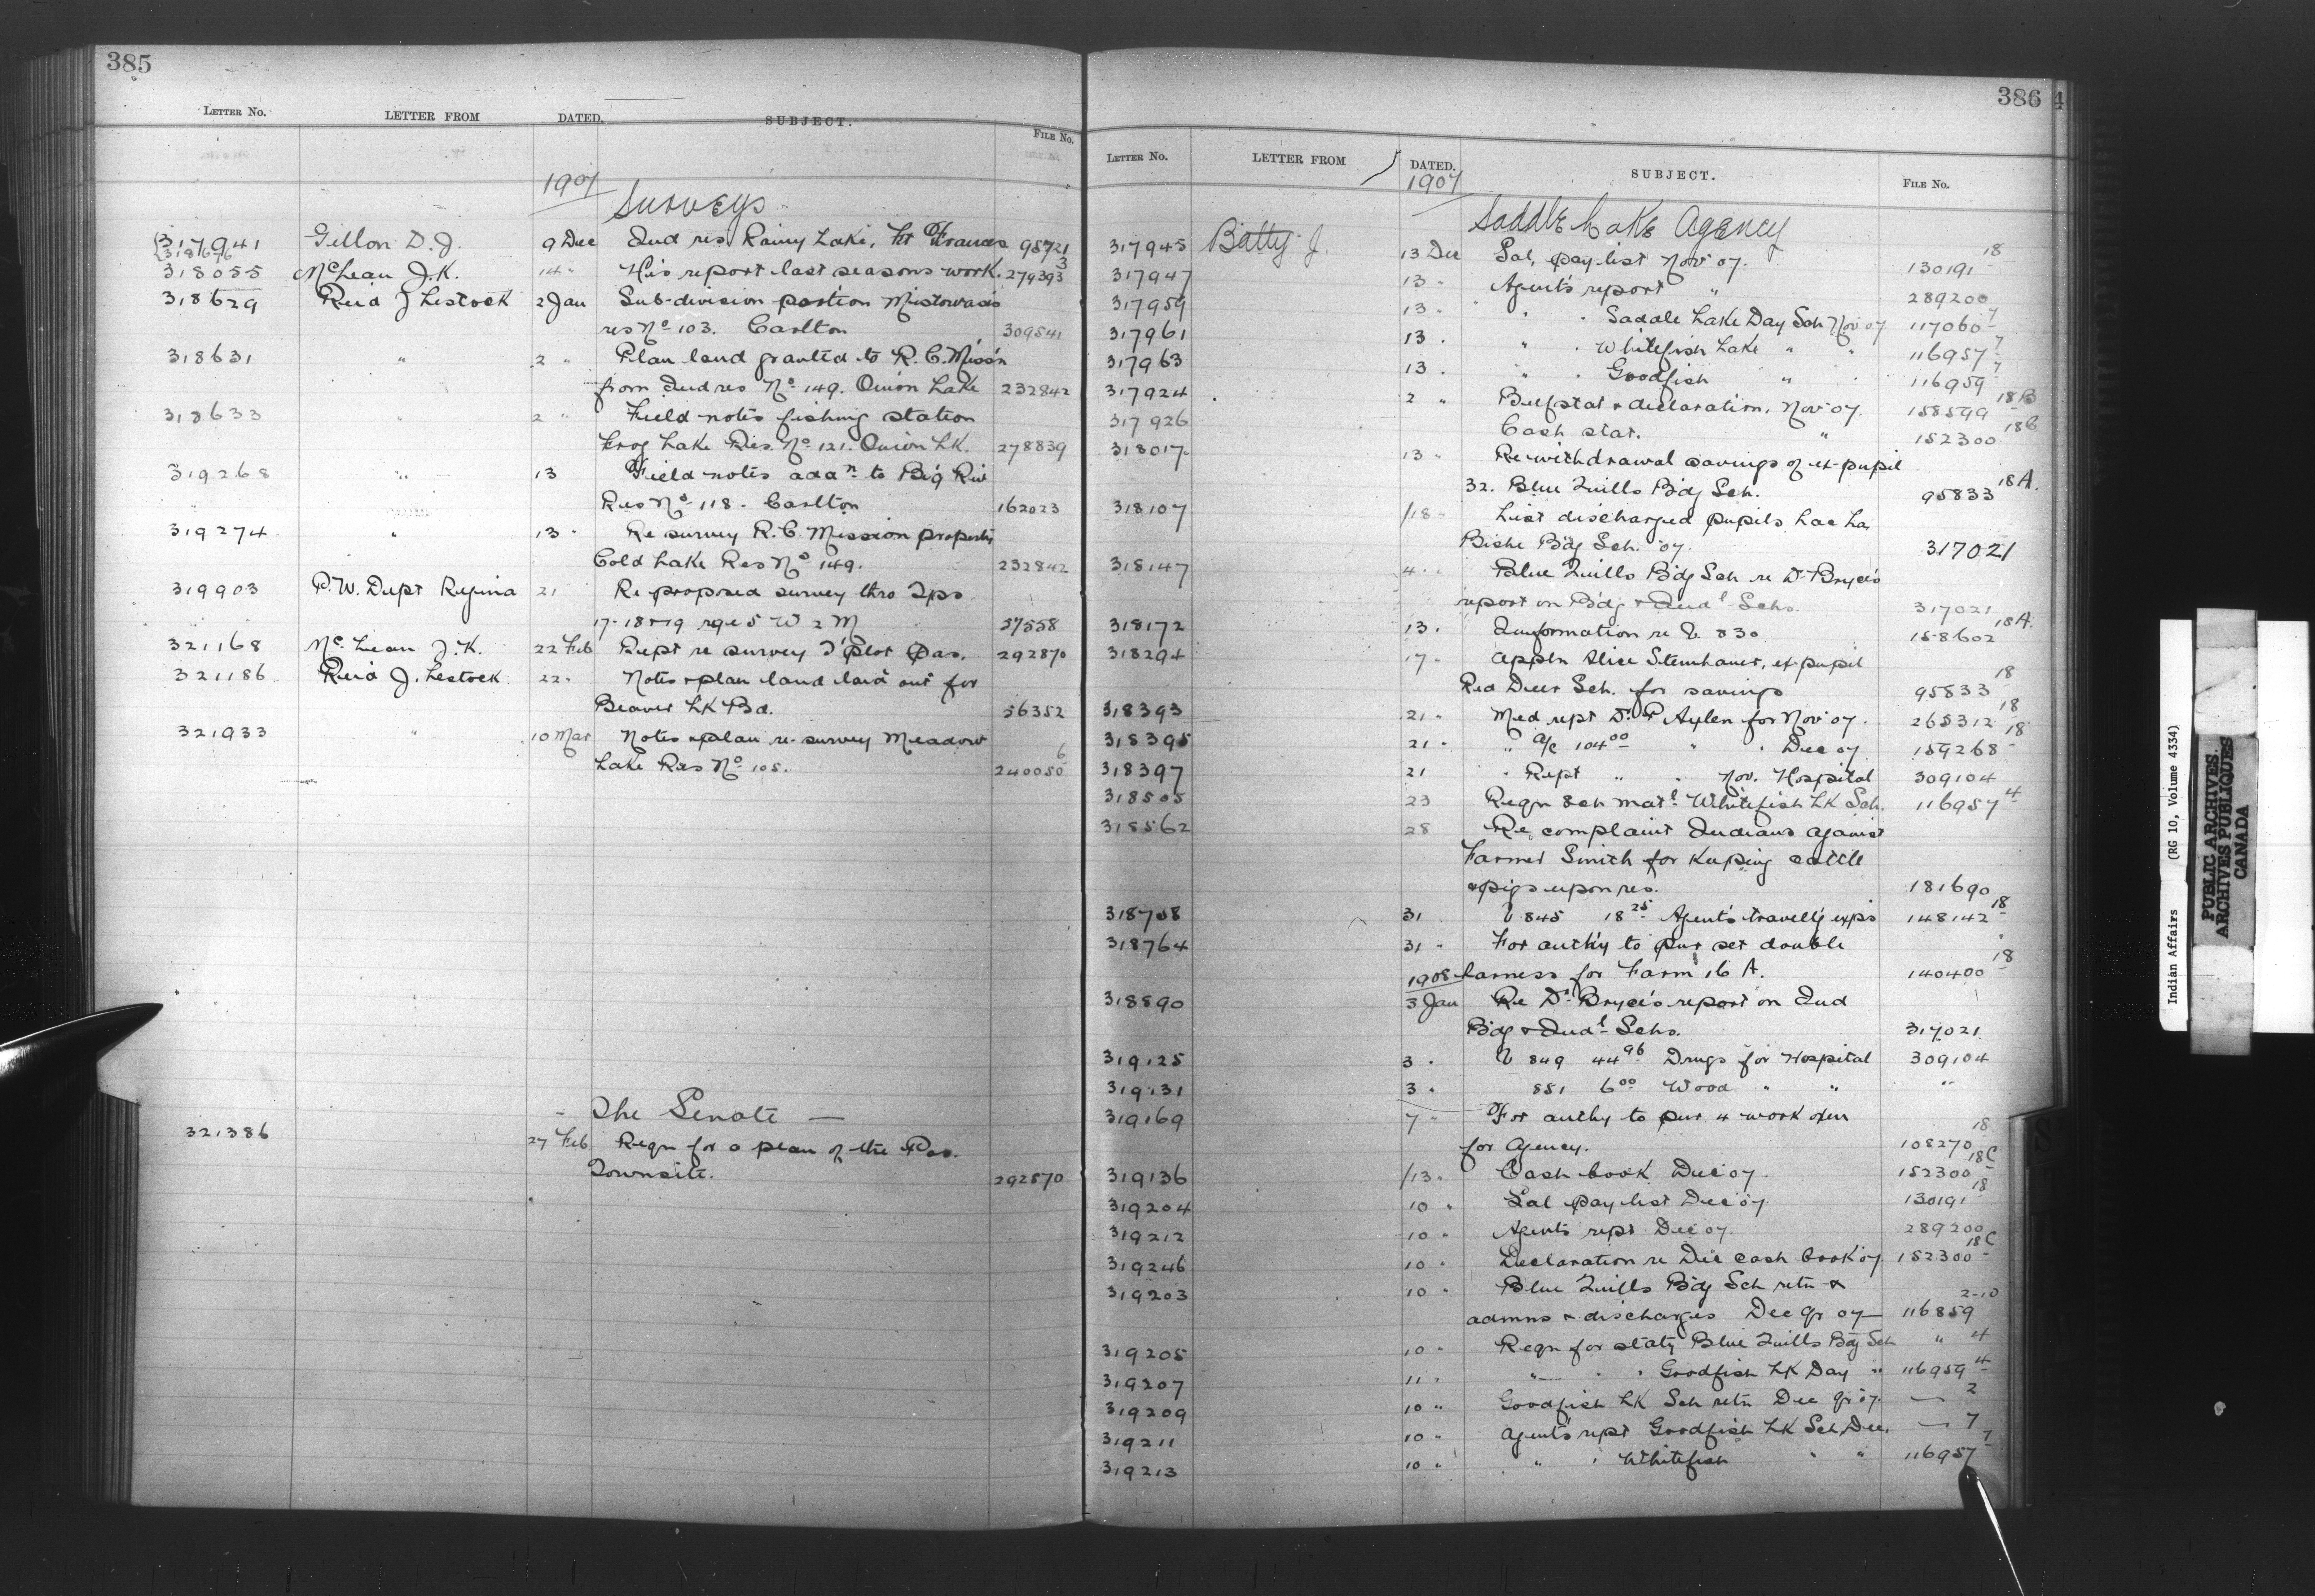 385
LETTER NO. LETTER FROM DATED. SUBJECT. FILE NO.
1907 Surveys
317941 Gillon D. J. 9 Dec Ind res. Rainy Lake, Ft Frances 98721
318696
318055 McLean J. K. 14 " His report last seasons work. 279393 3
318629 Reid J Lestock 2 Jan Sub-division portion Mistowasis
res No 103. Carlton 309541
318631 " 2 " Plan land granted to R. C. Miss'n
from Ind res No 149. Onion Lake 232842
318633 " 2 " Field notes fishing station
Frog Lake Res. No 121. Onion Lk. 278839
319268 " 13 Field notes addn to Big Riv
Res No 118. Carlton 162023
319274 " 13 " Re survey R. C. Mission property
Cold Lake Res No 149. 232842
319903 P. W. Dept Regina 21 Re proposed survey thro Tps
17-18+19 rge 5 W 2 M 57558
321168 McLean J. K. 22 Feb Rept re survey T'plot Pas. 292870
321186 Reid J. Lestock 22 " Notes + plan land laid out for
Beaver Lk Bd. 56352
321933 " 10 Mar Notes + plan re-survey Meadow
Lake Res No 105. 240050 6
- The Senate -
321386 27 Feb Reqn for a plan of the Pas.
Townsite. 292870
386
4
LETTER NO. LETTER FROM DATED. SUBJECT. FILE NO.
1907 Saddle Lake Agency
317945 Batty J. 13 Dec Sal. pay list Nov 07. 130191 18
317947 13 " Agent's report " 289200
317959 13 " " " Saddle Lake Day Sch Nov 07 117060 7
317961 13 " " " Whitefish Lake " " 116957 7
317963 13 " " " Goodfish " " 116959 7
317924 2 " Beef stat + declaration, Nov 07. 158599 18B
317926 Cash stat. " 152300 18C
318017 13 " Re withdrawal savings of ex-pupil
32. Blue Quills B'dg Sch. 95833 18A.
318107 18 " List discharged pupils Lac La
Biche B'dg Sch. 07. 317021
318147 4 " Blue Quills B'dg Sch re Dr Bryce's
report on B'dg + Indl Schs. 317021
318172 13 " Information re V. 830 158602 18A.
318294 17 " Appln Alice Steinhauer, ex-pupil
Red Deer Sch. for savings 95833 18
318393 21 " Med rept Dr P Aylen for Nov 07. 265312 18
318395 21 " " a/c 104 00 " " Dec 07 159268 18
318397 21 " Rept " " Nov. Hospital 309104
318505 23 Reqn sch matl. Whitefish Lk Sch. 116957 4
318562 28 Re complaint Indians against
Farmer Smith for keeping cattle
+ pigs upon res. 181690
318758 31 V 845 18 25 Agent's travell'g exp's 148142 18
318764 31 " For auth'y to pur set double
1908 harness for Farm 16 A. 140400 18
318890 3 Jan Re Dr Bryce's report on Ind
B'dg + Indl Schs. 317021
319125 3 " V 849 44 96 Drugs for Hospital 309104
319131 3 " 851 6 00 Wood " " "
319169 7 " For authy to pur 4 work oxen
for Agency. 108270 18
319136 13 " Cash book Dec 07. 152300 18C
319204 10 " Sal pay list Dec 07 130191 18
319212 10 " Agents rept Dec 07. 289200
319246 10 " Declaration re Dec cash book 07. 152300 18C
319203 10 " Blue Quills B'dg Sch retn +
admns + discharges Dec qr 07 116859 2-10
319205 10 " Reqn for staty Blue Quills B'dg Sch " 4
319207 11 " " " " Goodfish Lk Day " 116959 4
319209 10 " Goodfish Lk Sch retn Dec qr 07. — 2
319211 10 " Agent's rept Goodfish Lk Sch Dec. — 7
319213 10 " " " Whitefish " " 116957 7
Indian Affairs (RG 10, Volume 4334)
PUBLIC ARCHIVES
ARCHIVES PUBLIQUES
CANADA